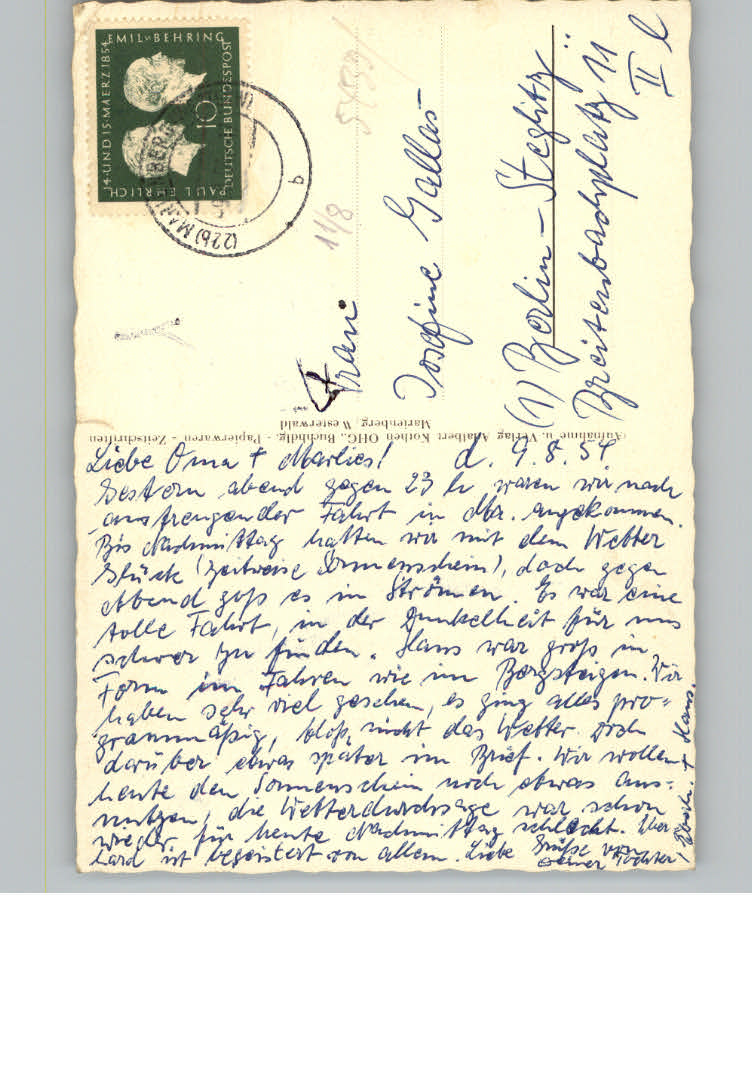 EMIL v. BEHRING
14. UND 15. MAERZ 1854
DEUTSCHE BUNDESPOST
10
PAUL EHRLICH
(22b) MARIENBERG
b
11/8
Frau
Josefine Gallas
(1) Berlin-Steglitz
Breitenbachplatz 11
II l
(Aufnahme u. Verlag Adalbert Kothen OHG., Buchhdlg. - Papierwaren - Zeitschriften
Marienberg, Westerwald
Liebe Oma + Marlies! d. 9.8.54.
Gestern abend gegen 23 h waren wir nach
anstrengender Fahrt in Mbr. angekommen.
Bis Nachmittag hatten wir mit dem Wetter
Glück (zeitweise Sonnenschein), doch gegen
Abend goß es in Strömen. Es war eine
tolle Fahrt, in der Dunkelheit für uns
schwer zu finden. Hans war groß in
Form im Fahren wie im Bergsteigen. Wir
haben sehr viel gesehen, es ging alles pro=
grammäßig, bloß nicht das Wetter. Doch
darüber etwas später im Brief. Wir wollen
heute den Sonnenschein noch etwas aus=
nutzen, die Wetterdurchsage war schon
wieder für heute Nachmittag schlecht. Eber
hard ist begeistert von allem. Liebe Grüße von
Deiner Tochter,
+ Hans.